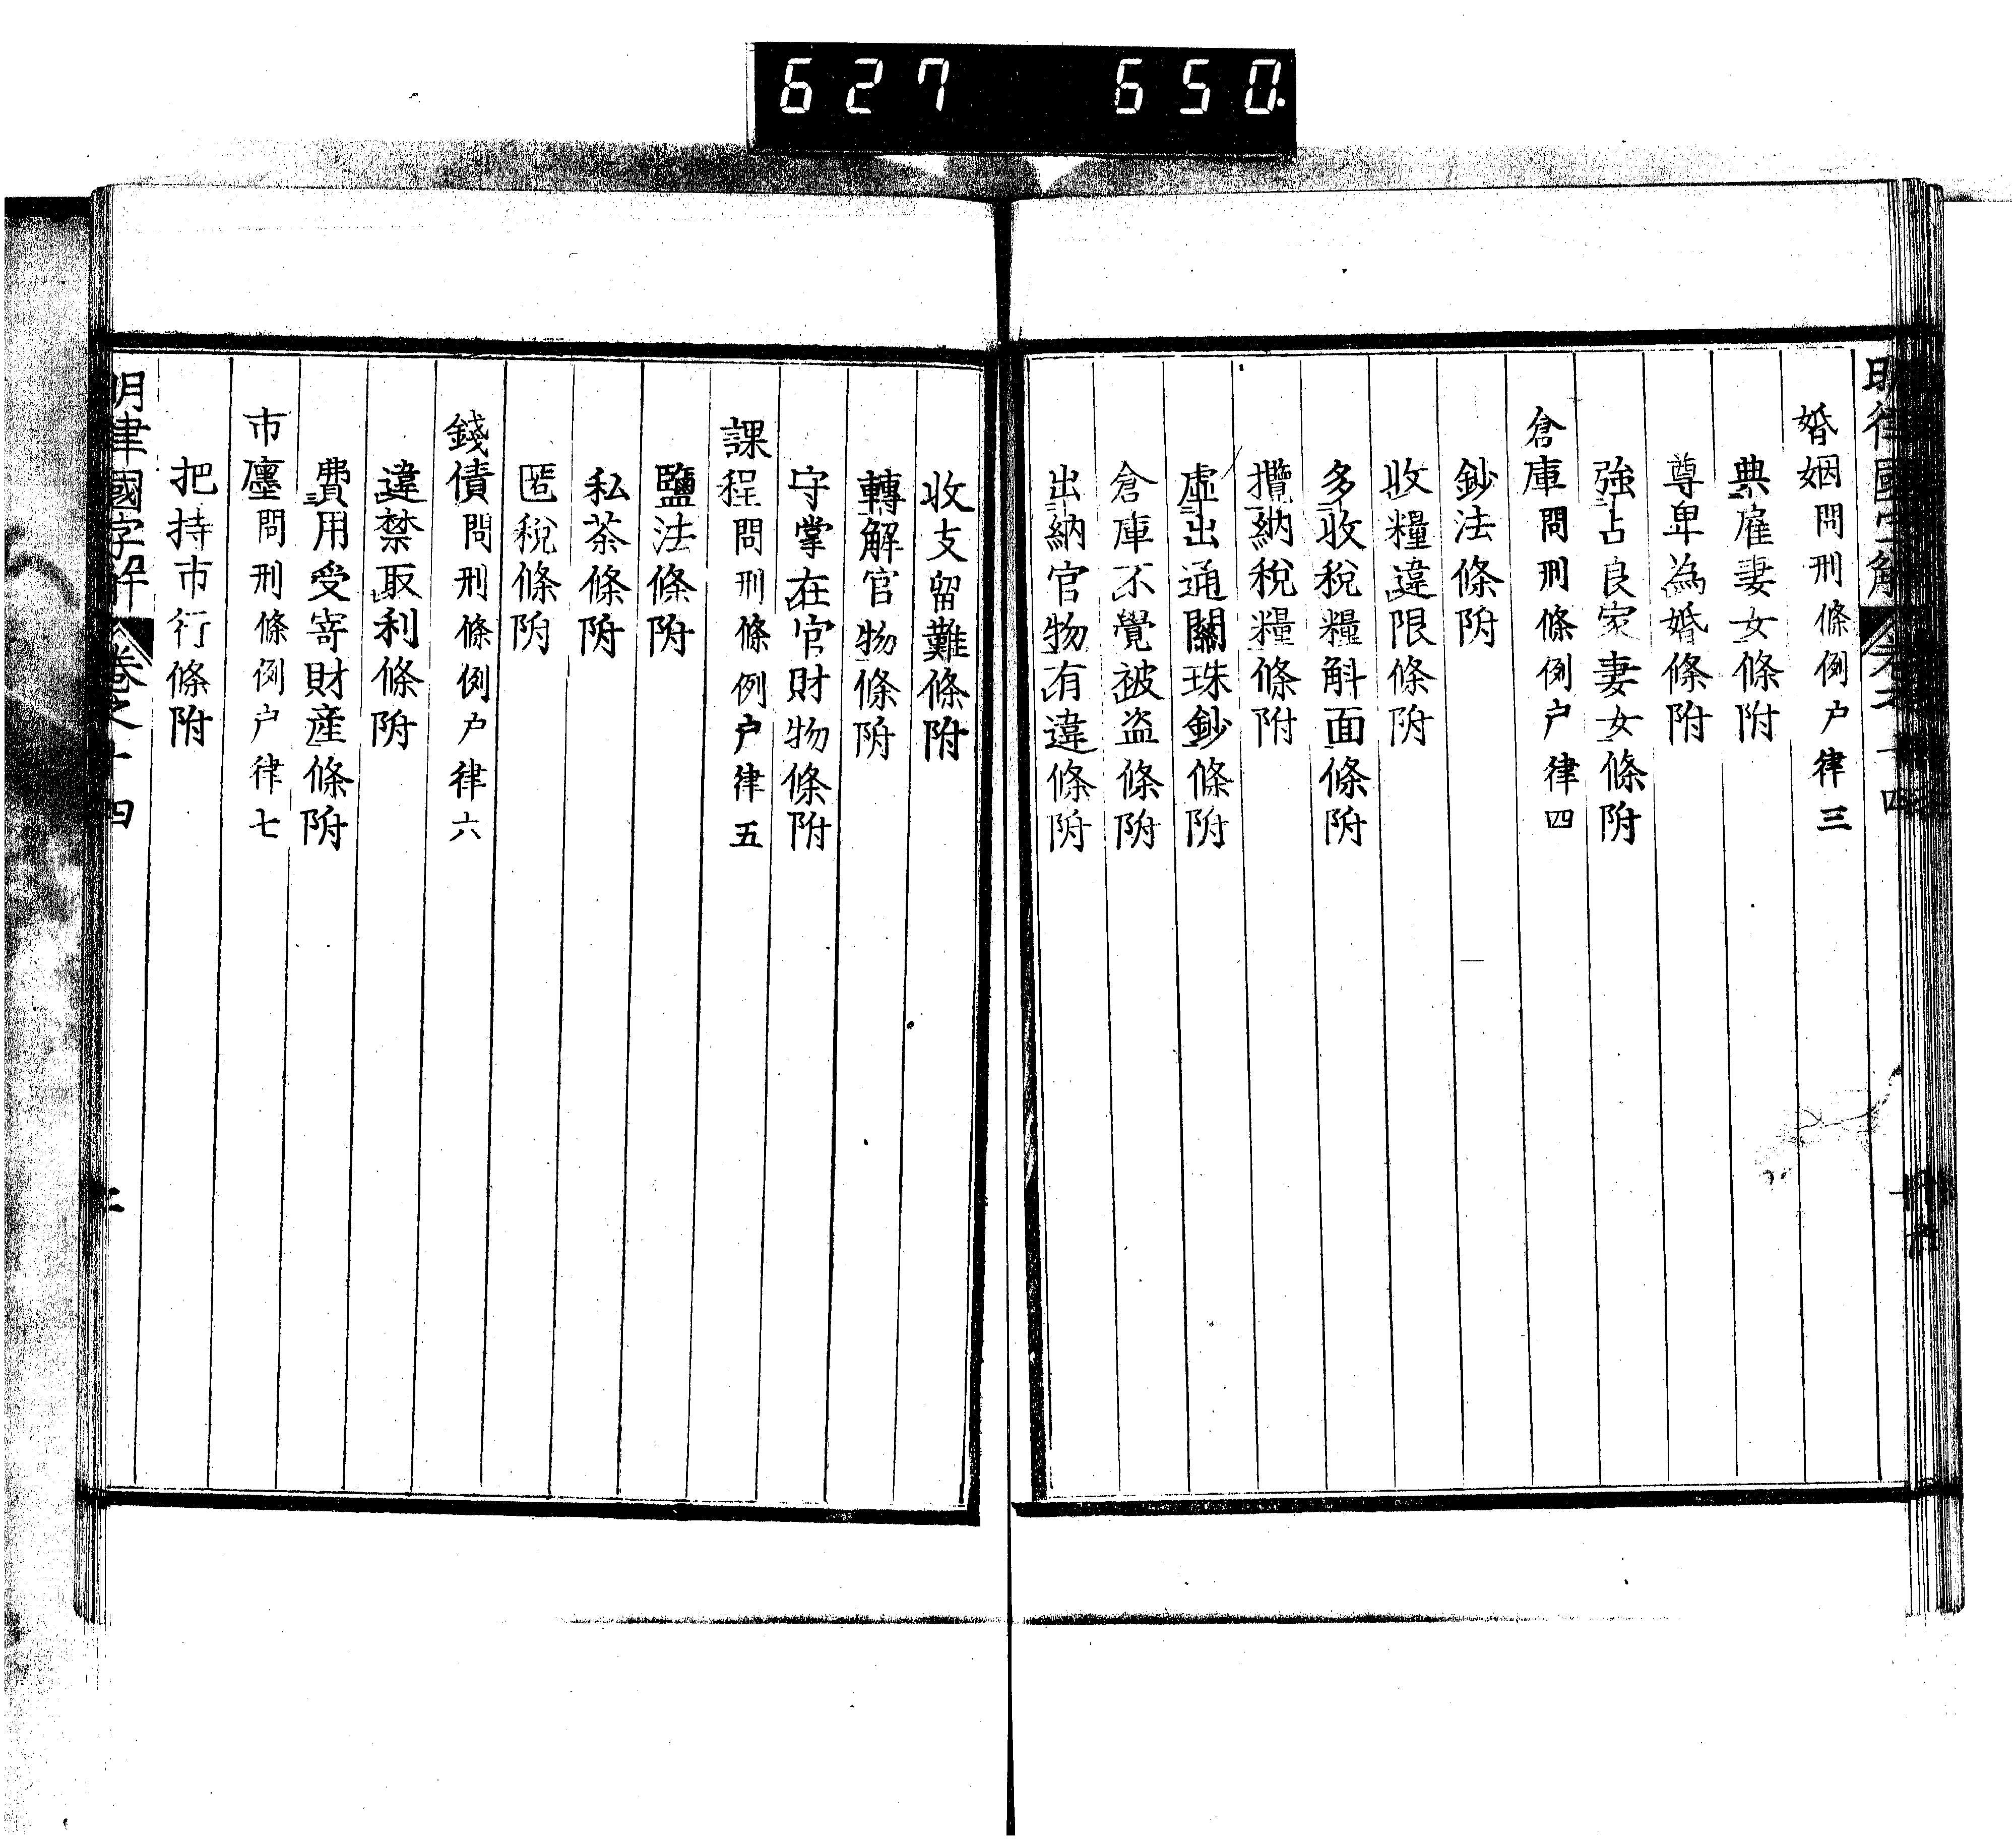 627 650
明律國字解 卷之十四
婚姻問刑條例户律三
典雇妻女條附
尊卑為婚條附
強占良家妻女條附
倉庫問刑條例户律四
鈔法條附
收糧違限條附
多收稅糧斛面條附
攬納稅糧條附
虛出通關硃鈔條附
倉庫不覺被盗條附
出納官物有違條附
收支留難條附
轉解官物條附
守掌在官財物條附
課程問刑條例户律五
鹽法條附
私茶條附
匿稅條附
錢債問刑條例户律六
違禁取利條附
費用受寄財產條附
市廛問刑條例户律七
把持市行條附
明律國字解 卷之十四 二